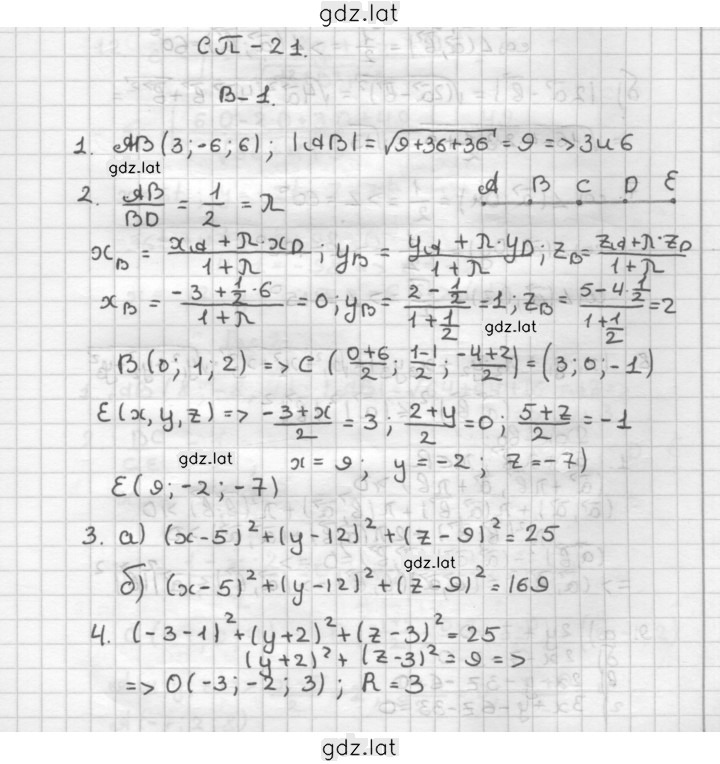 gdz.lat
СП - 21.
В - 1.
1. AB (3; -6; 6); |AB| = √(9+36+36) = 9 => 3 и 6
gdz.lat
A B C D E
2. AB/BD = 1/2 = λ
x_B = (x_A + λ·x_D)/(1+λ); y_B = (y_A + λ·y_D)/(1+λ); z_B = (z_A + λ·z_D)/(1+λ)
x_B = (-3 + 1/2·6)/(1+λ) = 0; y_B = (2 - 1/2)/(1 + 1/2) = 1; z_B = (5 - 4·1/2)/(1 + 1/2) = 2
gdz.lat
B (0; 1; 2) => C ((0+6)/2; (1-1)/2; (-4+2)/2) = (3; 0; -1)
E (x, y, z) => (-3+x)/2 = 3; (2+y)/2 = 0; (5+z)/2 = -1
gdz.lat
x = 9; y = -2; z = -7)
E (9; -2; -7)
3. а) (x-5)² + (y-12)² + (z-9)² = 25
gdz.lat
б) (x-5)² + (y-12)² + (z-9)² = 169
4. (-3-1)² + (y+2)² + (z-3)² = 25
(y+2)² + (z-3)² = 9 =>
=> O (-3; -2; 3); R = 3
gdz.lat